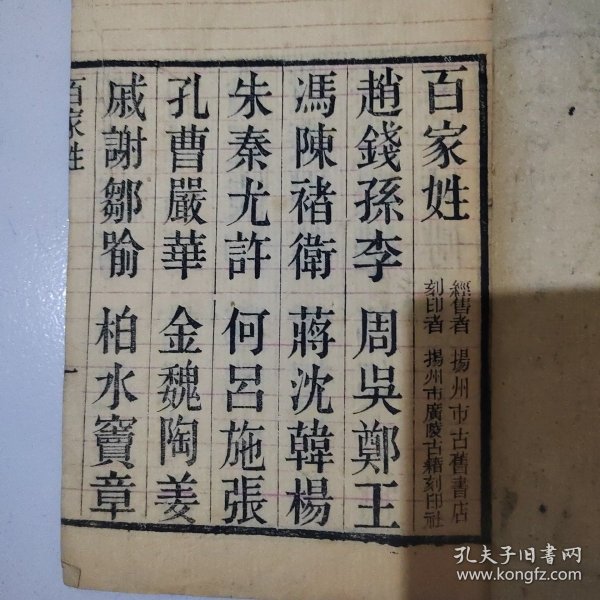 百家姓
經售者 揚州市古舊書店
刻印者 揚州市廣陵古籍刻印社
趙錢孫李 周吳鄭王
馮陳褚衛 蔣沈韓楊
朱秦尤許 何呂施張
孔曹嚴華 金魏陶姜
戚謝鄒喻 柏水竇章
百家姓 一
孔夫子旧书网
www.kongfz.com